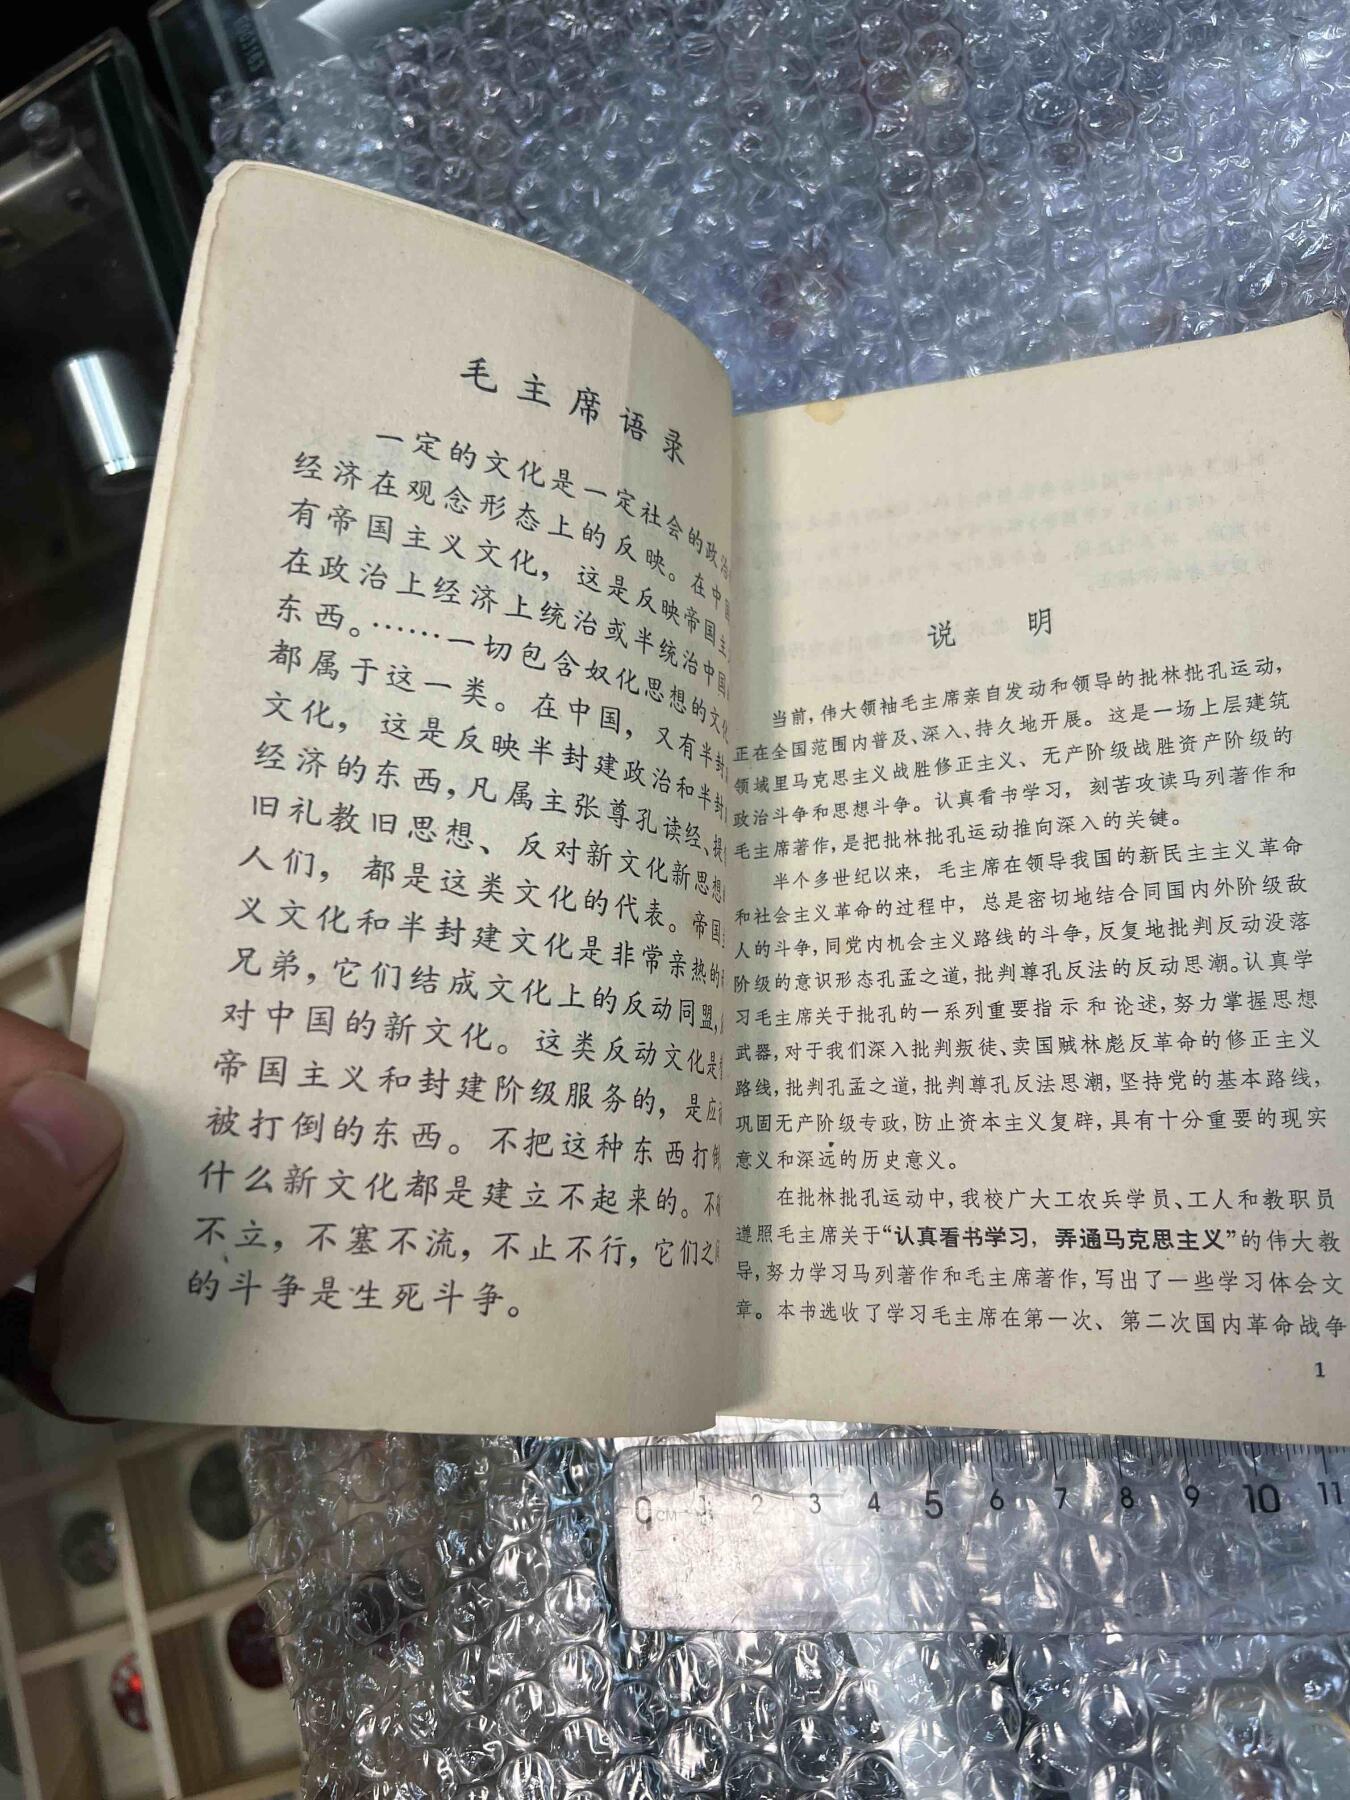 毛主席语录
一定的文化是一定社会的政治
经济在观念形态上的反映。在中国
有帝国主义文化，这是反映帝国主
在政治上经济上统治或半统治中国
东西。……一切包含奴化思想的文化
都属于这一类。在中国，又有半封
文化，这是反映半封建政治和半封
经济的东西，凡属主张尊孔读经、提
旧礼教旧思想、反对新文化新思想
人们，都是这类文化的代表。帝国
义文化和半封建文化是非常亲热的
兄弟，它们结成文化上的反动同盟，
对中国的新文化。这类反动文化是
帝国主义和封建阶级服务的，是应
被打倒的东西。不把这种东西打倒
什么新文化都是建立不起来的。不
不立，不塞不流，不止不行，它们之
的斗争是生死斗争。
说 明
当前，伟大领袖毛主席亲自发动和领导的批林批孔运动，
正在全国范围内普及、深入、持久地开展。这是一场上层建筑
领域里马克思主义战胜修正主义、无产阶级战胜资产阶级的
政治斗争和思想斗争。认真看书学习，刻苦攻读马列著作和
毛主席著作，是把批林批孔运动推向深入的关键。
半个多世纪以来，毛主席在领导我国的新民主主义革命
和社会主义革命的过程中，总是密切地结合同国内外阶级敌
人的斗争，同党内机会主义路线的斗争，反复地批判反动没落
阶级的意识形态孔孟之道，批判尊孔反法的反动思潮。认真学
习毛主席关于批孔的一系列重要指示和论述，努力掌握思想
武器，对于我们深入批判叛徒、卖国贼林彪反革命的修正主义
路线，批判孔孟之道，批判尊孔反法思潮，坚持党的基本路线，
巩固无产阶级专政，防止资本主义复辟，具有十分重要的现实
意义和深远的历史意义。
在批林批孔运动中，我校广大工农兵学员、工人和教职员
遵照毛主席关于“认真看书学习，弄通马克思主义”的伟大教
导，努力学习马列著作和毛主席著作，写出了一些学习体会文
章。本书选收了学习毛主席在第一次、第二次国内革命战争
1
0 1 2 3 4 5 6 7 8 9 10 11
CM